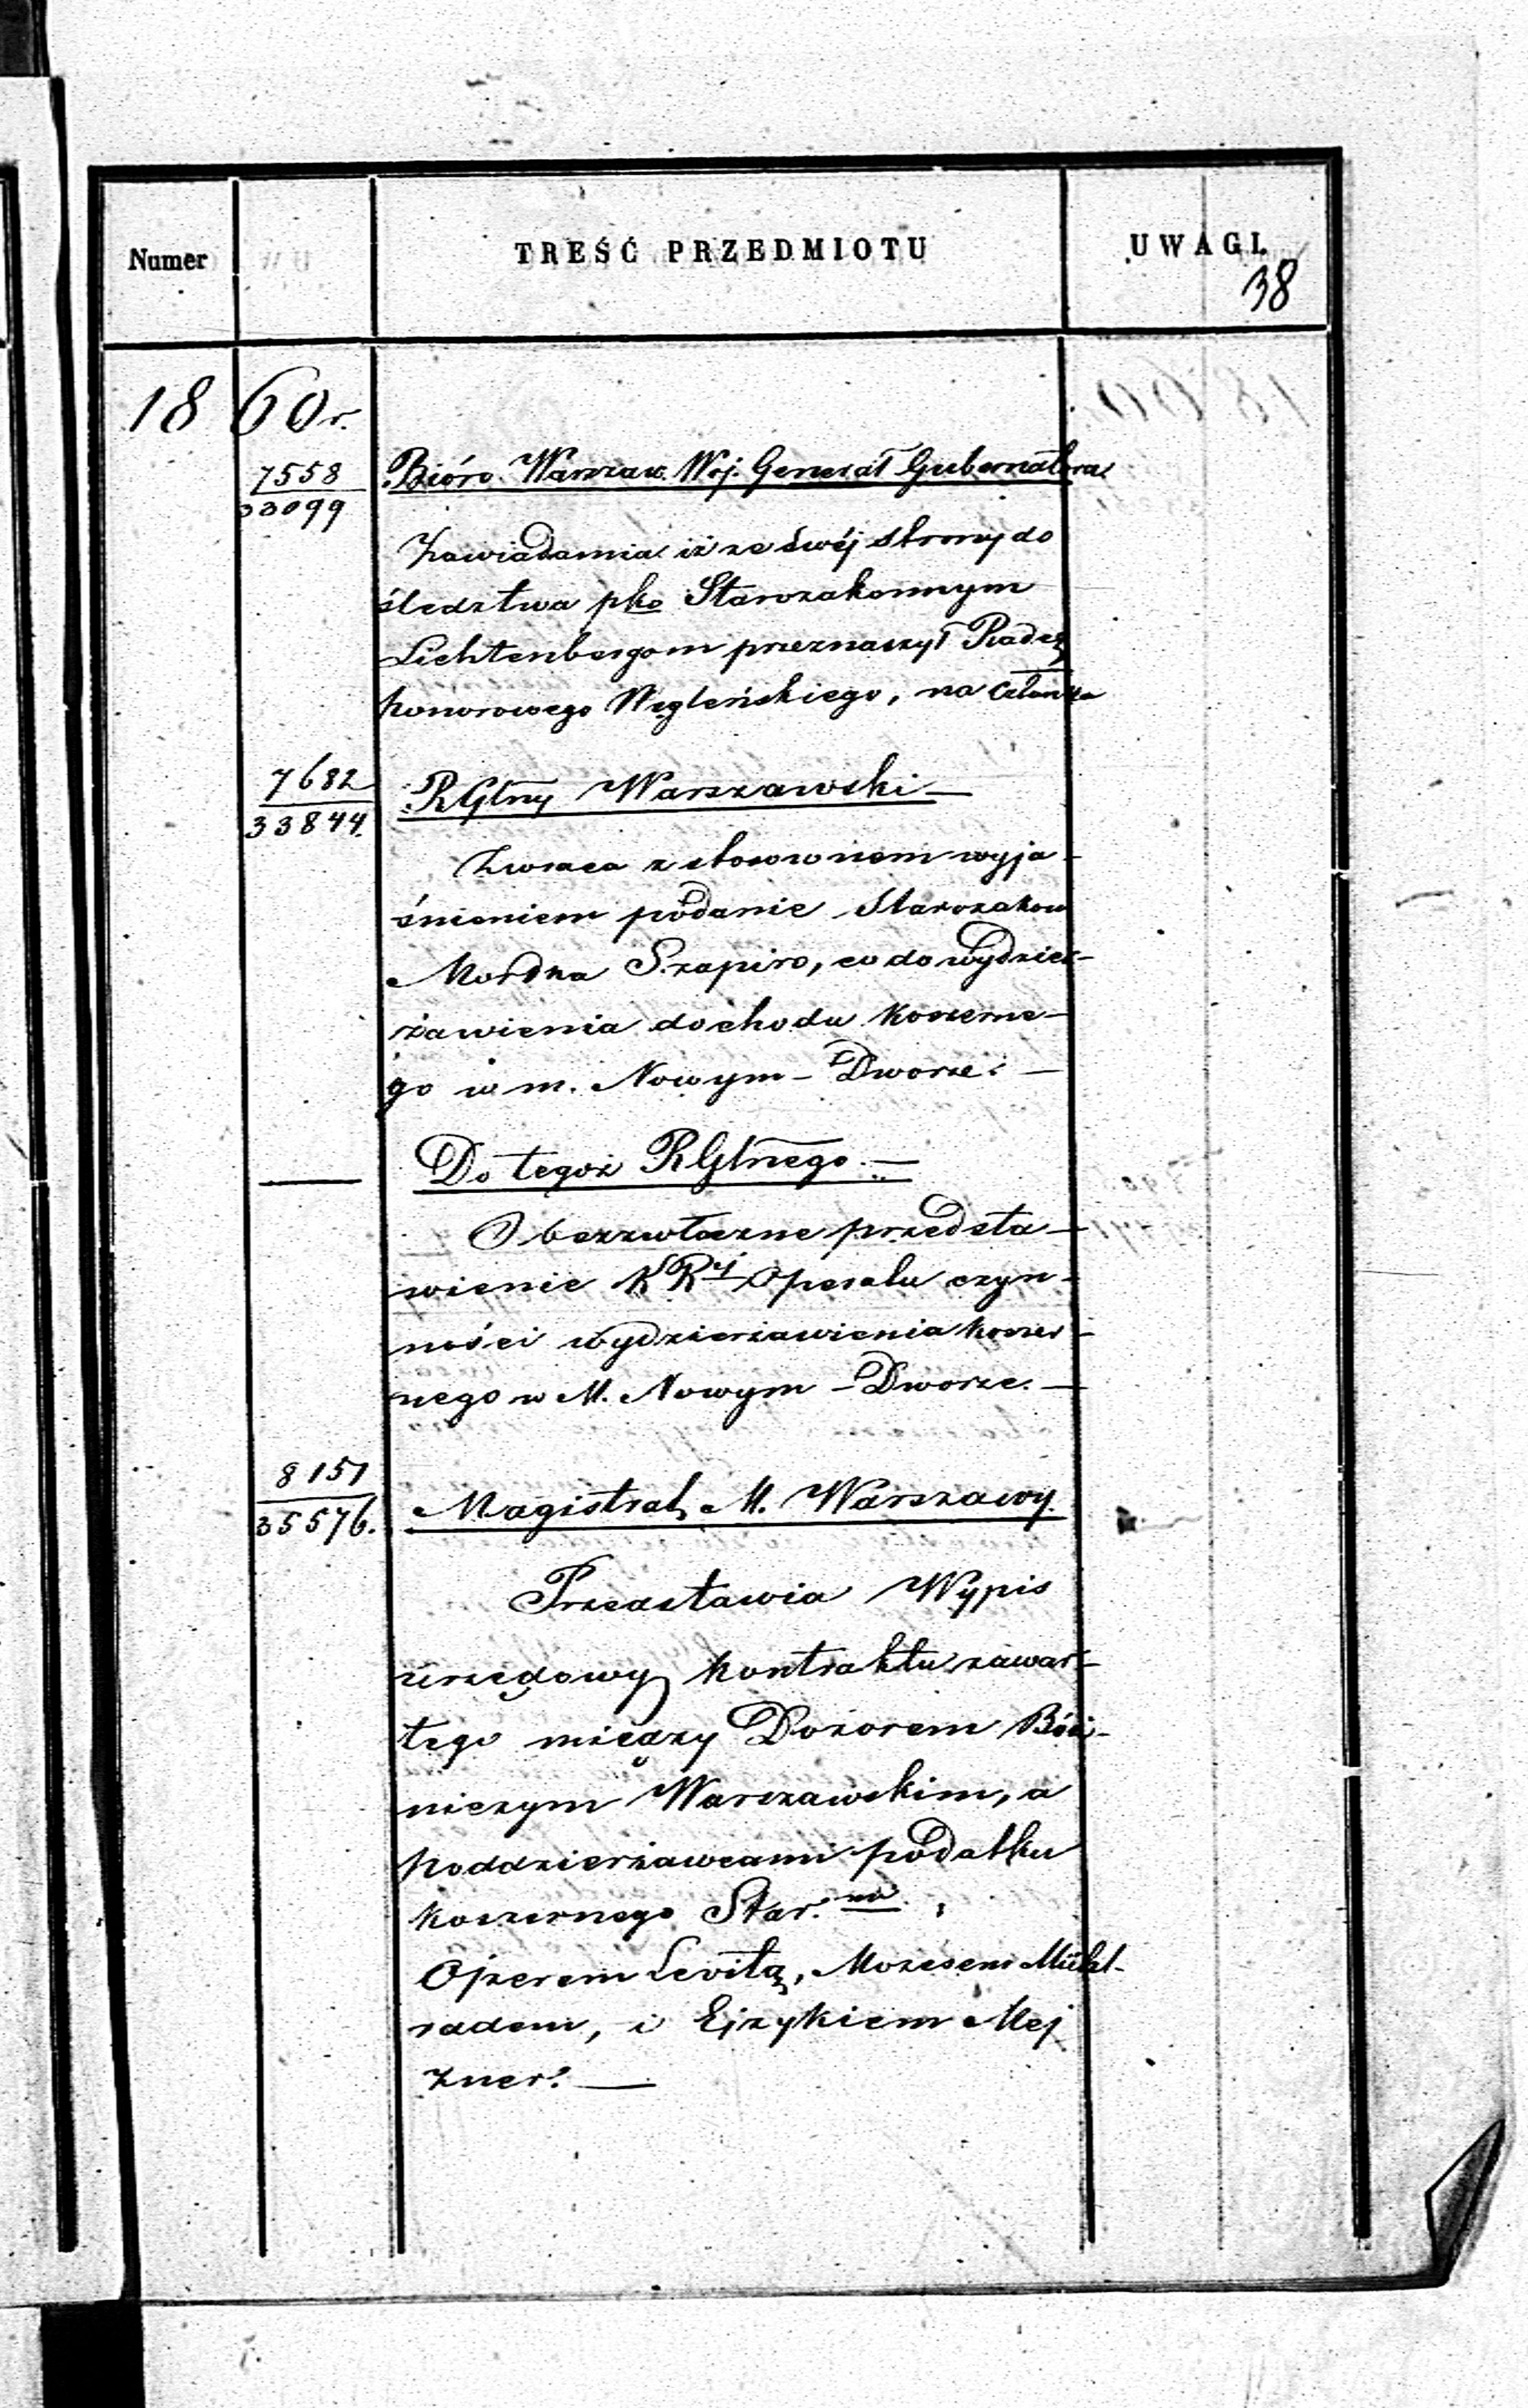 Numer
TREŚĆ PRZEDMIOTU
UWAGI.
38
1860r.
7558
33099
Bióro Warszaw. Woj. Generał Gubernatora
Zawiadamia iż ze swéj strony do
śledztwa pko Starozakonnym
Lichtenbergom przeznaczył Radcę
honorowego Węgleńskiego, na Członka
7682
33844.
RGlny Warszawski —
Zwraca z stosownem wyja-
śnieniem podanie Starozakon
Mordka Szapiro, co do wydzier-
żawienia dochodu koszerne-
go w m. Nowym-Dworze. —
Do tegoż RGlnego. —
O bezzwłoczne przedsta-
wienie KRyi Operatu czyn-
ności wydzierżawienia koszer-
nego w M. Nowym-Dworze. —
8151
35576.
Magistrat M. Warszawy.
Przedstawia Wypis
urzędowy kontraktu zawar-
tego między Dozorem Bóż-
niczym Warszawskim, a
Poddzierżawcami podatku
koszernego Star.
Ojzerem Levitą, Mozesem Mühl-
radem, i Ejzykiem Mej
zner. —